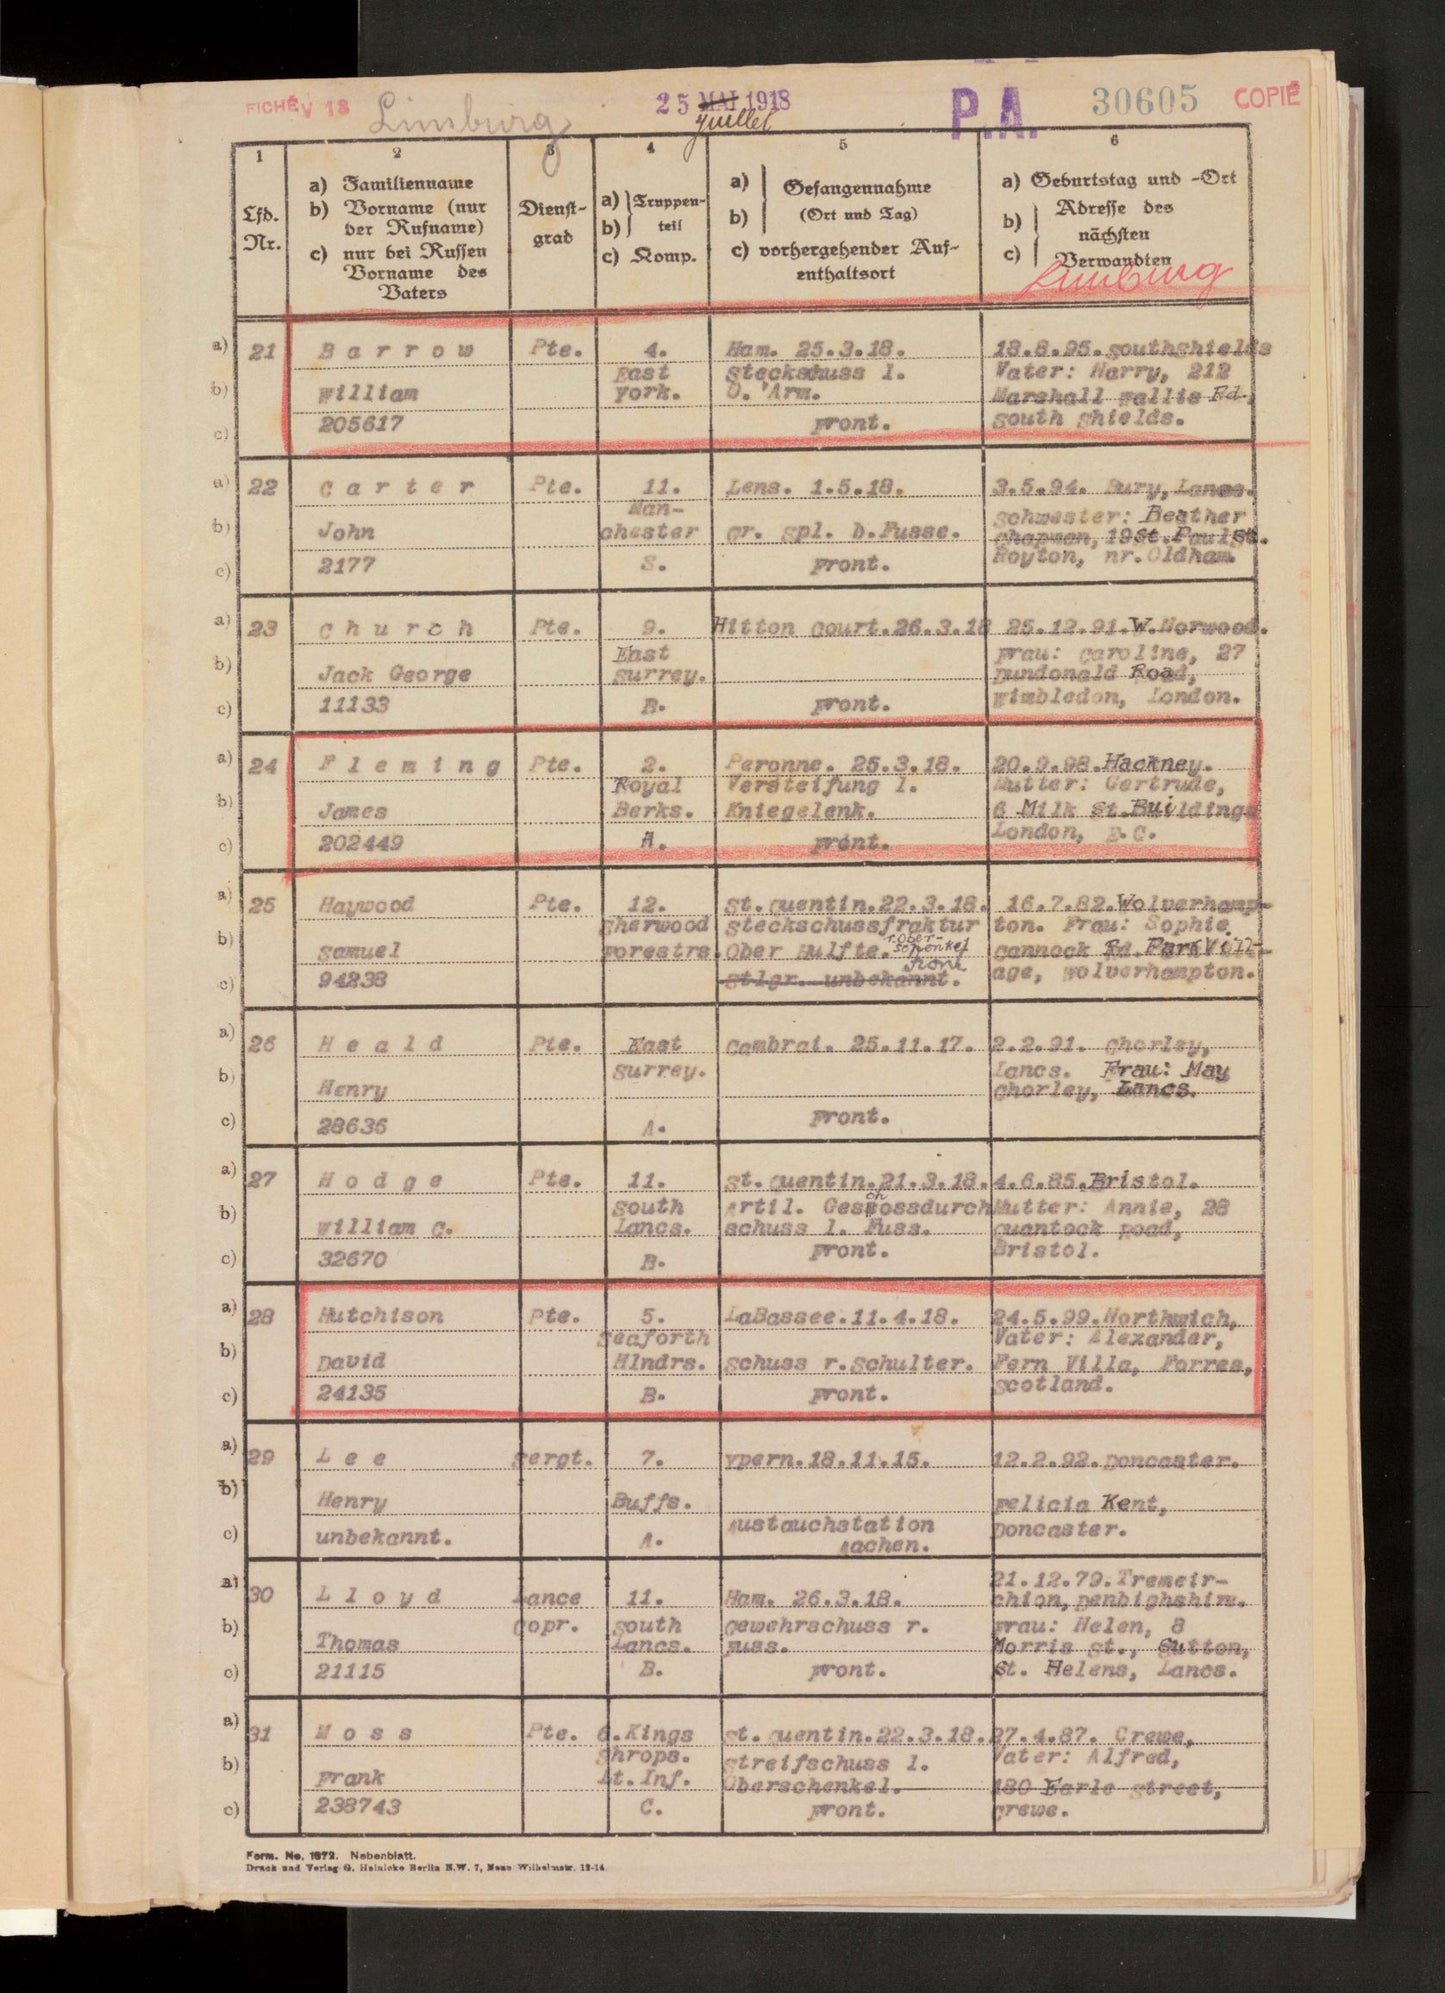 FICHÉ V 18 Limburg 25 MAI 1918 P.A. 30605 COPIÉ
juillet
1 2 3 4 5 6
Lfd. Nr.
a) Familienname
b) Vorname (nur
der Rufname)
c) nur bei Russen
Vorname des
Vaters
Dienst-
grad
a) Truppen-
b) teil
c) Komp.
a) Gefangennahme
b) (Ort und Tag)
c) vorhergehender Auf-
enthaltsort
a) Geburtstag und -Ort
b) Adresse des
nächsten
c) Verwandten
Limburg
a) 21 Barrow Pte. 4. Ham. 25.3.18. 18.8.95. southshields
East steckschuss l. Vater: Harry, 212
b) William york. O.'Arm. Marshall wallis Rd.,
c) 205617 Front. south shields.
a) 22 Carter Pte. 11. Lens. 1.5.18. 3.5.94. Bury, Lancs.
Man- schwester: Heather
b) John chester Gr. spl. b.Fusse. chapman, 19St.Paulst.
c) 2177 S. Front. Royton, nr.Oldham.
a) 23 Church Pte. 9. Hitton court.26.3.18 25.12.91.W.Norwood.
East Frau: caroline, 27
b) Jack George surrey. Dundonald Road,
c) 11133 B. Front. Wimbledon, London.
a) 24 Fleming Pte. 2. Peronne. 25.3.18. 20.9.98.Hackney.
Royal Versteifung l. Mutter: Gertrude,
b) James Berks. Kniegelenk. 6 Milk st.Buildings
c) 202449 A. Front. London, E.C.
a) 25 Haywood Pte. 12. st.quentin.22.3.18. 16.7.82.Wolverhamp-
sherwood steckschussfraktur ton. Frau: Sophie
b) Samuel Forestrs. Ober Hülfte. r.Ober-schenkel cannock Rd. Park Vill-
Front.
c) 94238 stlgr. unbekannt. age, Wolverhampton.
a) 26 Heald Pte. East Cambrai. 25.11.17. 2.2.91. Chorley,
b) surrey. Lancs. Frau: May
Henry Chorley, Lancs.
c) 28636 A. Front.
a) 27 Hodge Pte. 11. st.quentin.21.3.18. 4.6.85.Bristol.
b) south Artil. Geschossdurch Mutter: Annie, 28
William C. Lancs. schuss l. Fuss. Quantock Road,
c) 32670 B. Front. Bristol.
a) 28 Hutchison Pte. 5. LaBassee.11.4.18. 24.5.99.Northwich,
seaforth Vater: Alexander,
b) David Hlndrs. schuss r.schulter. Fern Villa, Forres,
c) 24135 B. Front. scotland.
a) 29 Lee Sergt. 7. Ypern.18.11.15. 12.2.92.Doncaster.
b) Henry Buffs. Felicia Kent,
c) unbekannt. A. Austauchstation Doncaster.
Aachen.
21.12.79.Tremeir-
a) 30 Lloyd Lance 11. Ham. 26.3.18. chion, Denbighshire.
b) Copr. south Gewehrschuss r. Frau: Helen, 8
Thomas Lancs. Fuss. Morris st., Sutton,
c) 21115 B. Front. St. Helens, Lancs.
a) 31 Moss Pte. 6.Kings st.quentin.22.3.18. 27.4.87. Crewe,
b) Shrops. streifschuss l. Vater: Alfred,
Frank Lt.Inf. Oberschenkel. 180 Earle street,
c) 238743 C. Front. Crewe.
Form. No. 1872. Nebenblatt.
Druck und Verlag O. Heinicke Berlin N.W. 7, Neue Wilhelmstr. 12-14